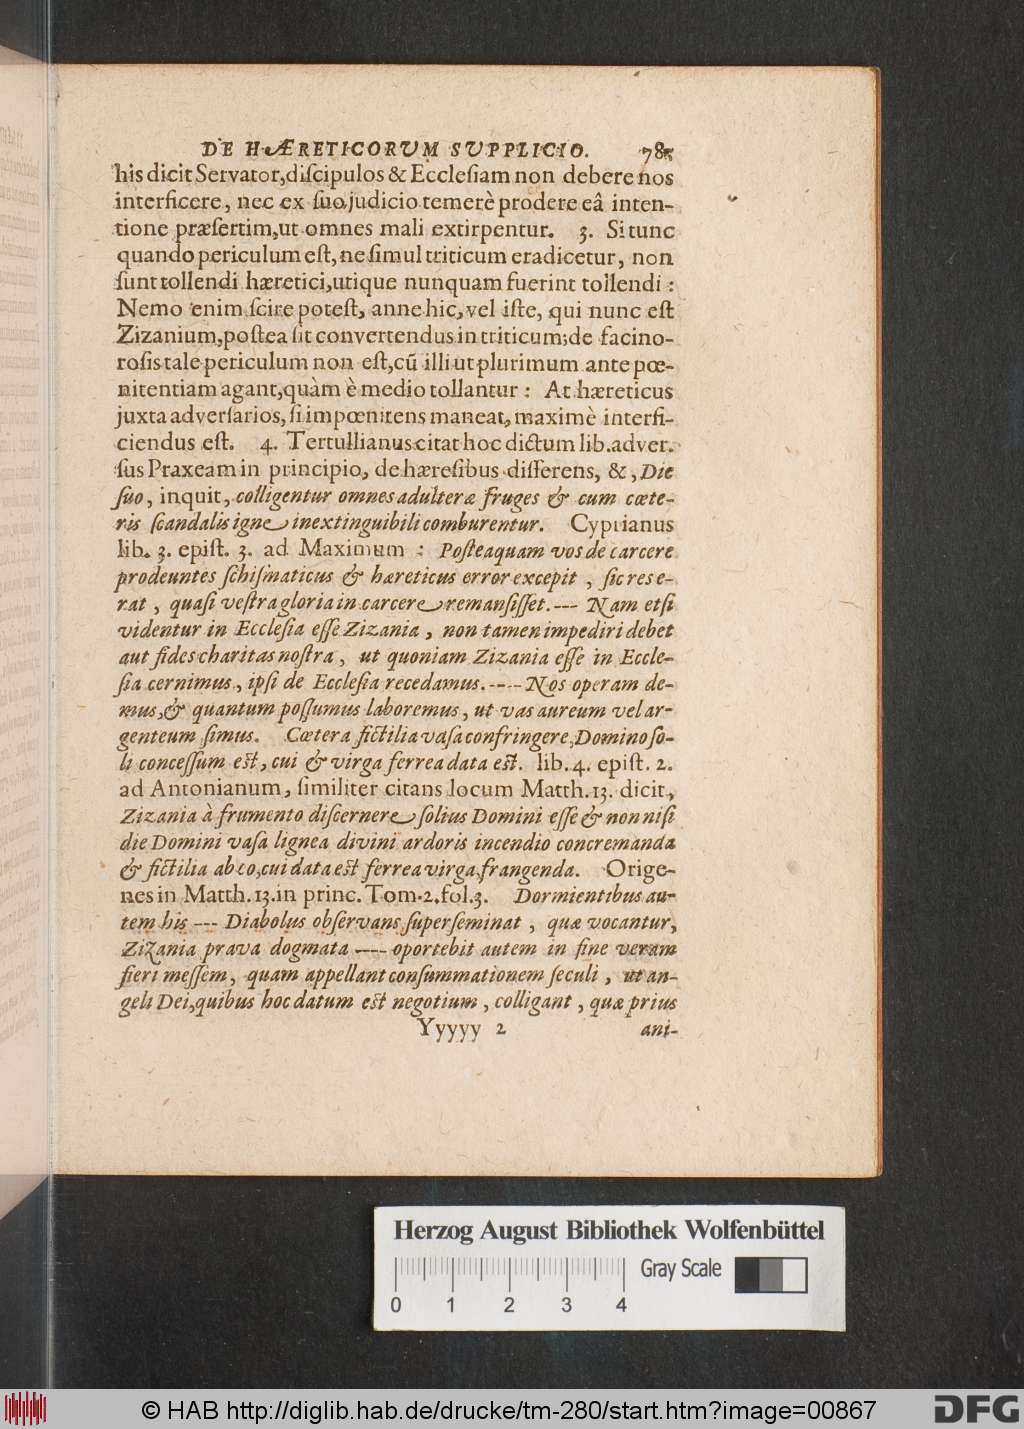 DE HÆRETICORUM SUPPLICIO. 785
his dicit Servator, diſcipulos & Eccleſiam non debere nos
interficere, nec ex ſuo judicio temerè prodere eâ inten-
tione præſertim, ut omnes mali extirpentur. 3. Si tunc
quando periculum eſt, ne ſimul triticum eradicetur, non
ſunt tollendi hæretici, utique nunquam fuerint tollendi:
Nemo enim ſcire poteſt, anne hic, vel iſte, qui nunc eſt
Zizanium, poſtea ſit convertendus in triticum; de facino-
roſis tale periculum non eſt, cũ illi ut plurimum ante pœ-
nitentiam agant, quàm è medio tollantur: At hæreticus
juxta adverſarios, ſi impœnitens maneat, maximè interfi-
ciendus eſt. 4. Tertullianus citat hoc dictum lib. adver-
ſus Praxeam in principio, de hæreſibus diſſerens, &, Die
ſuo, inquit, colligentur omnes adulteræ fruges & cum cœte-
ris ſcandalis igne inextinguibili comburentur. Cyprianus
lib. 3. epiſt. 3. ad Maximum: Poſteaquam vos de carcere
prodeuntes ſchiſmaticus & hæreticus error excepit, ſic res e-
rat, quaſi veſtra gloria in carcere remanſiſſet. --- Nam etſi
videntur in Eccleſia eſſe Zizania, non tamen impediri debet
aut fides charitas noſtra, ut quoniam Zizania eſſe in Eccle-
ſia cernimus, ipſi de Eccleſia recedamus. ---- Nos operam de-
mus, & quantum poſſumus laboremus, ut vas aureum vel ar-
genteum ſimus. Cœtera fictilia vaſa confringere, Domino ſo-
li conceſſum eſt, cui & virga ferrea data eſt. lib. 4. epiſt. 2.
ad Antonianum, ſimiliter citans locum Matth. 13. dicit,
Zizania à frumento diſcernere ſolius Domini eſſe & non niſi
die Domini vaſa lignea divini ardoris incendio concremanda
& fictilia ab eo, cui data eſt ferrea virga, frangenda. Orige-
nes in Matth. 13. in princ. Tom. 2. fol. 3. Dormientibus au-
tem his --- Diabolus obſervans ſuperſeminat, quæ vocantur,
Zizania prava dogmata ---- oportebit autem in fine veram
fieri meſſem, quam appellant conſummationem ſeculi, ut an-
geli Dei, quibus hoc datum eſt negotium, colligant, quæ prius
Yyyyy 2 ani-
Herzog August Bibliothek Wolfenbüttel
Gray Scale
0 1 2 3 4
© HAB http://diglib.hab.de/drucke/tm-280/start.htm?image=00867
DFG